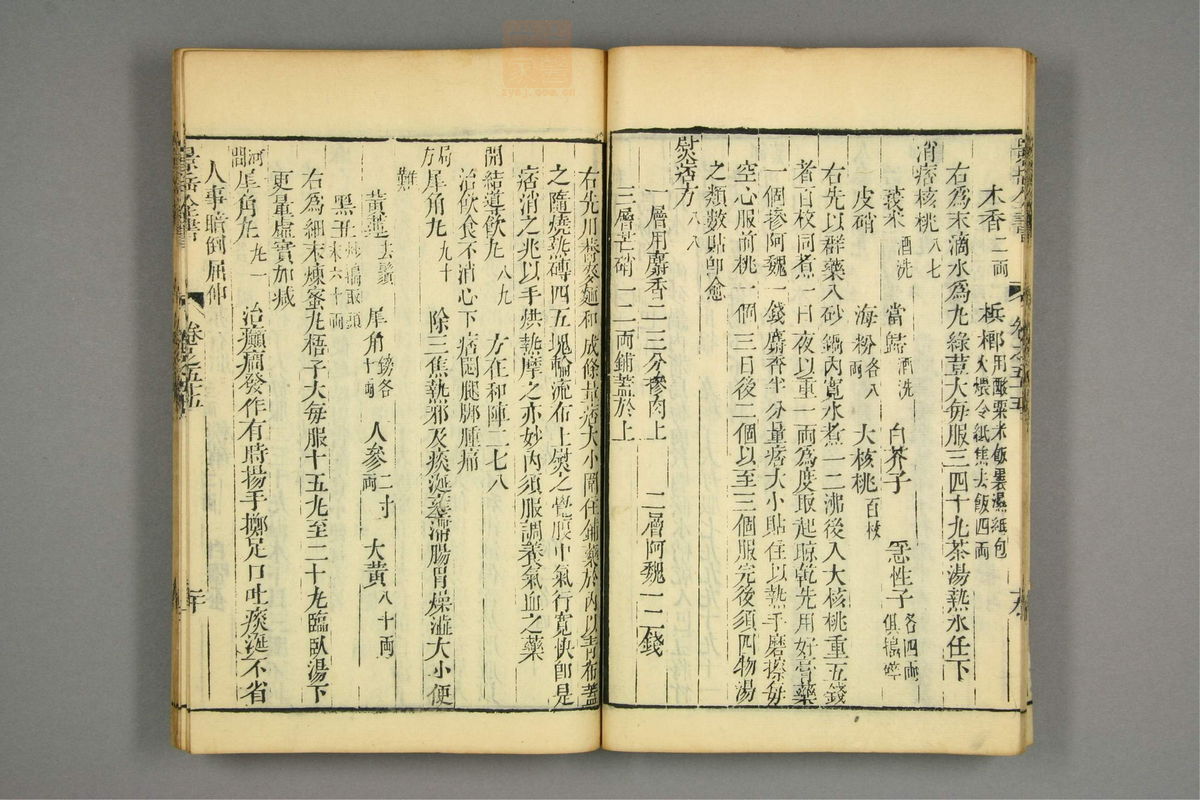 木香二兩 檳榔用酸粟米飯裹濕紙包火煨令紙焦去飯四兩
右為末滴水為丸綠荳大每服三四十丸茶湯熱水任下
消痞核桃八七
莪朮酒洗 當歸酒洗 白芥子 急性子各四兩俱搗碎
皮硝 海粉各八兩 大核桃百枚
右先以群藥入砂鍋內寬水煮一二沸後入大核桃重五錢
者百枚同煮一日夜以重一兩為度取起晾乾先用好膏藥
一個摻阿魏一錢麝香半分量痞大小貼住以熱手磨擦每
空心服前桃一個三日後二個以至三個服完後須四物湯
之類數貼即愈
熨痞方八八
一層用麝香二三分摻肉上 二層阿魏一二錢
三層芒硝一二兩鋪蓋於上
右先用蕎麥麵和成條量痞大小圍住鋪藥於內以青布蓋
之隨燒熱磚四五塊輪流布上熨之覺腹中氣行寬快即是
痞消之兆以手烘熱摩之亦妙內須服調養氣血之藥
開結導飲丸八九 方在和陣二七八
治飲食不消心下痞悶腿脚腫痛
局方犀角丸九十 除三焦熱邪及痰涎壅滯腸胃燥澁大小便
難
黃連去鬚 犀角鎊各十兩 人參二兩 大黃八十兩
黑丑炒搗取頭末六十兩
右為細末煉蜜丸梧子大每服十五丸至二十丸臨臥湯下
更量虛實加減
河間犀角丸九一 治癲癇發作有時揚手擲足口吐痰涎不省
人事暗倒屈伸
景岳全書 卷之五十五